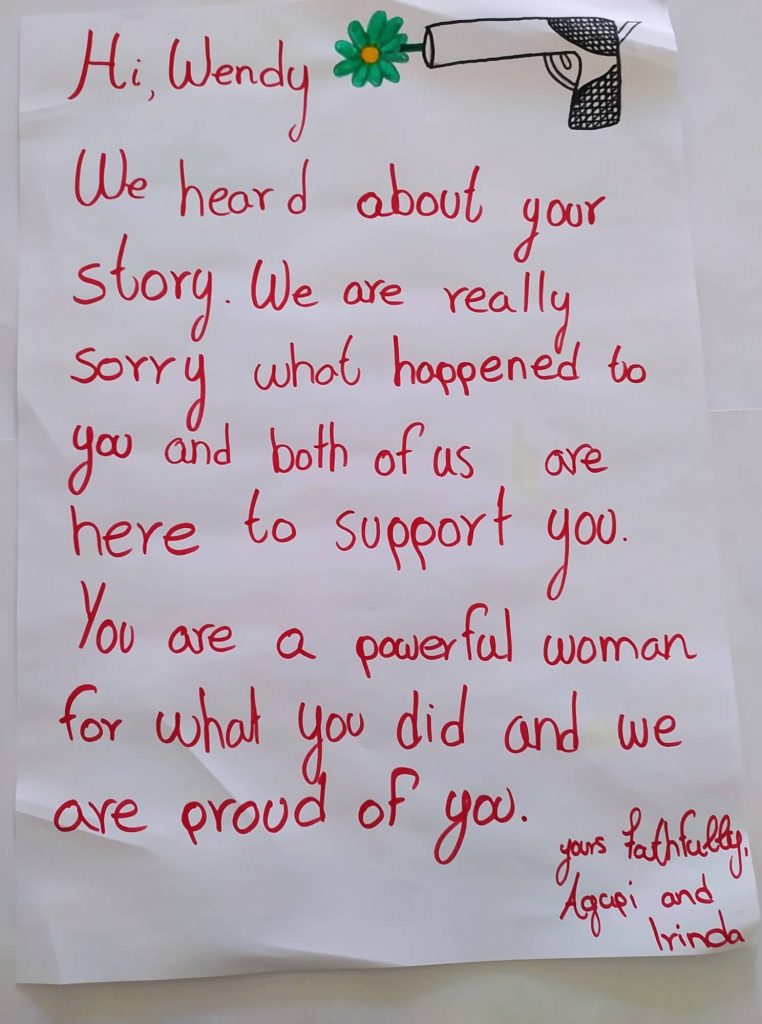 Hi, Wendy
We heard about your
story. We are really
sorry what happened to
you and both of us are
here to support you.
You are a powerful woman
for what you did and we
are proud of you.
yours fathfully,
Agapi and
Irinda